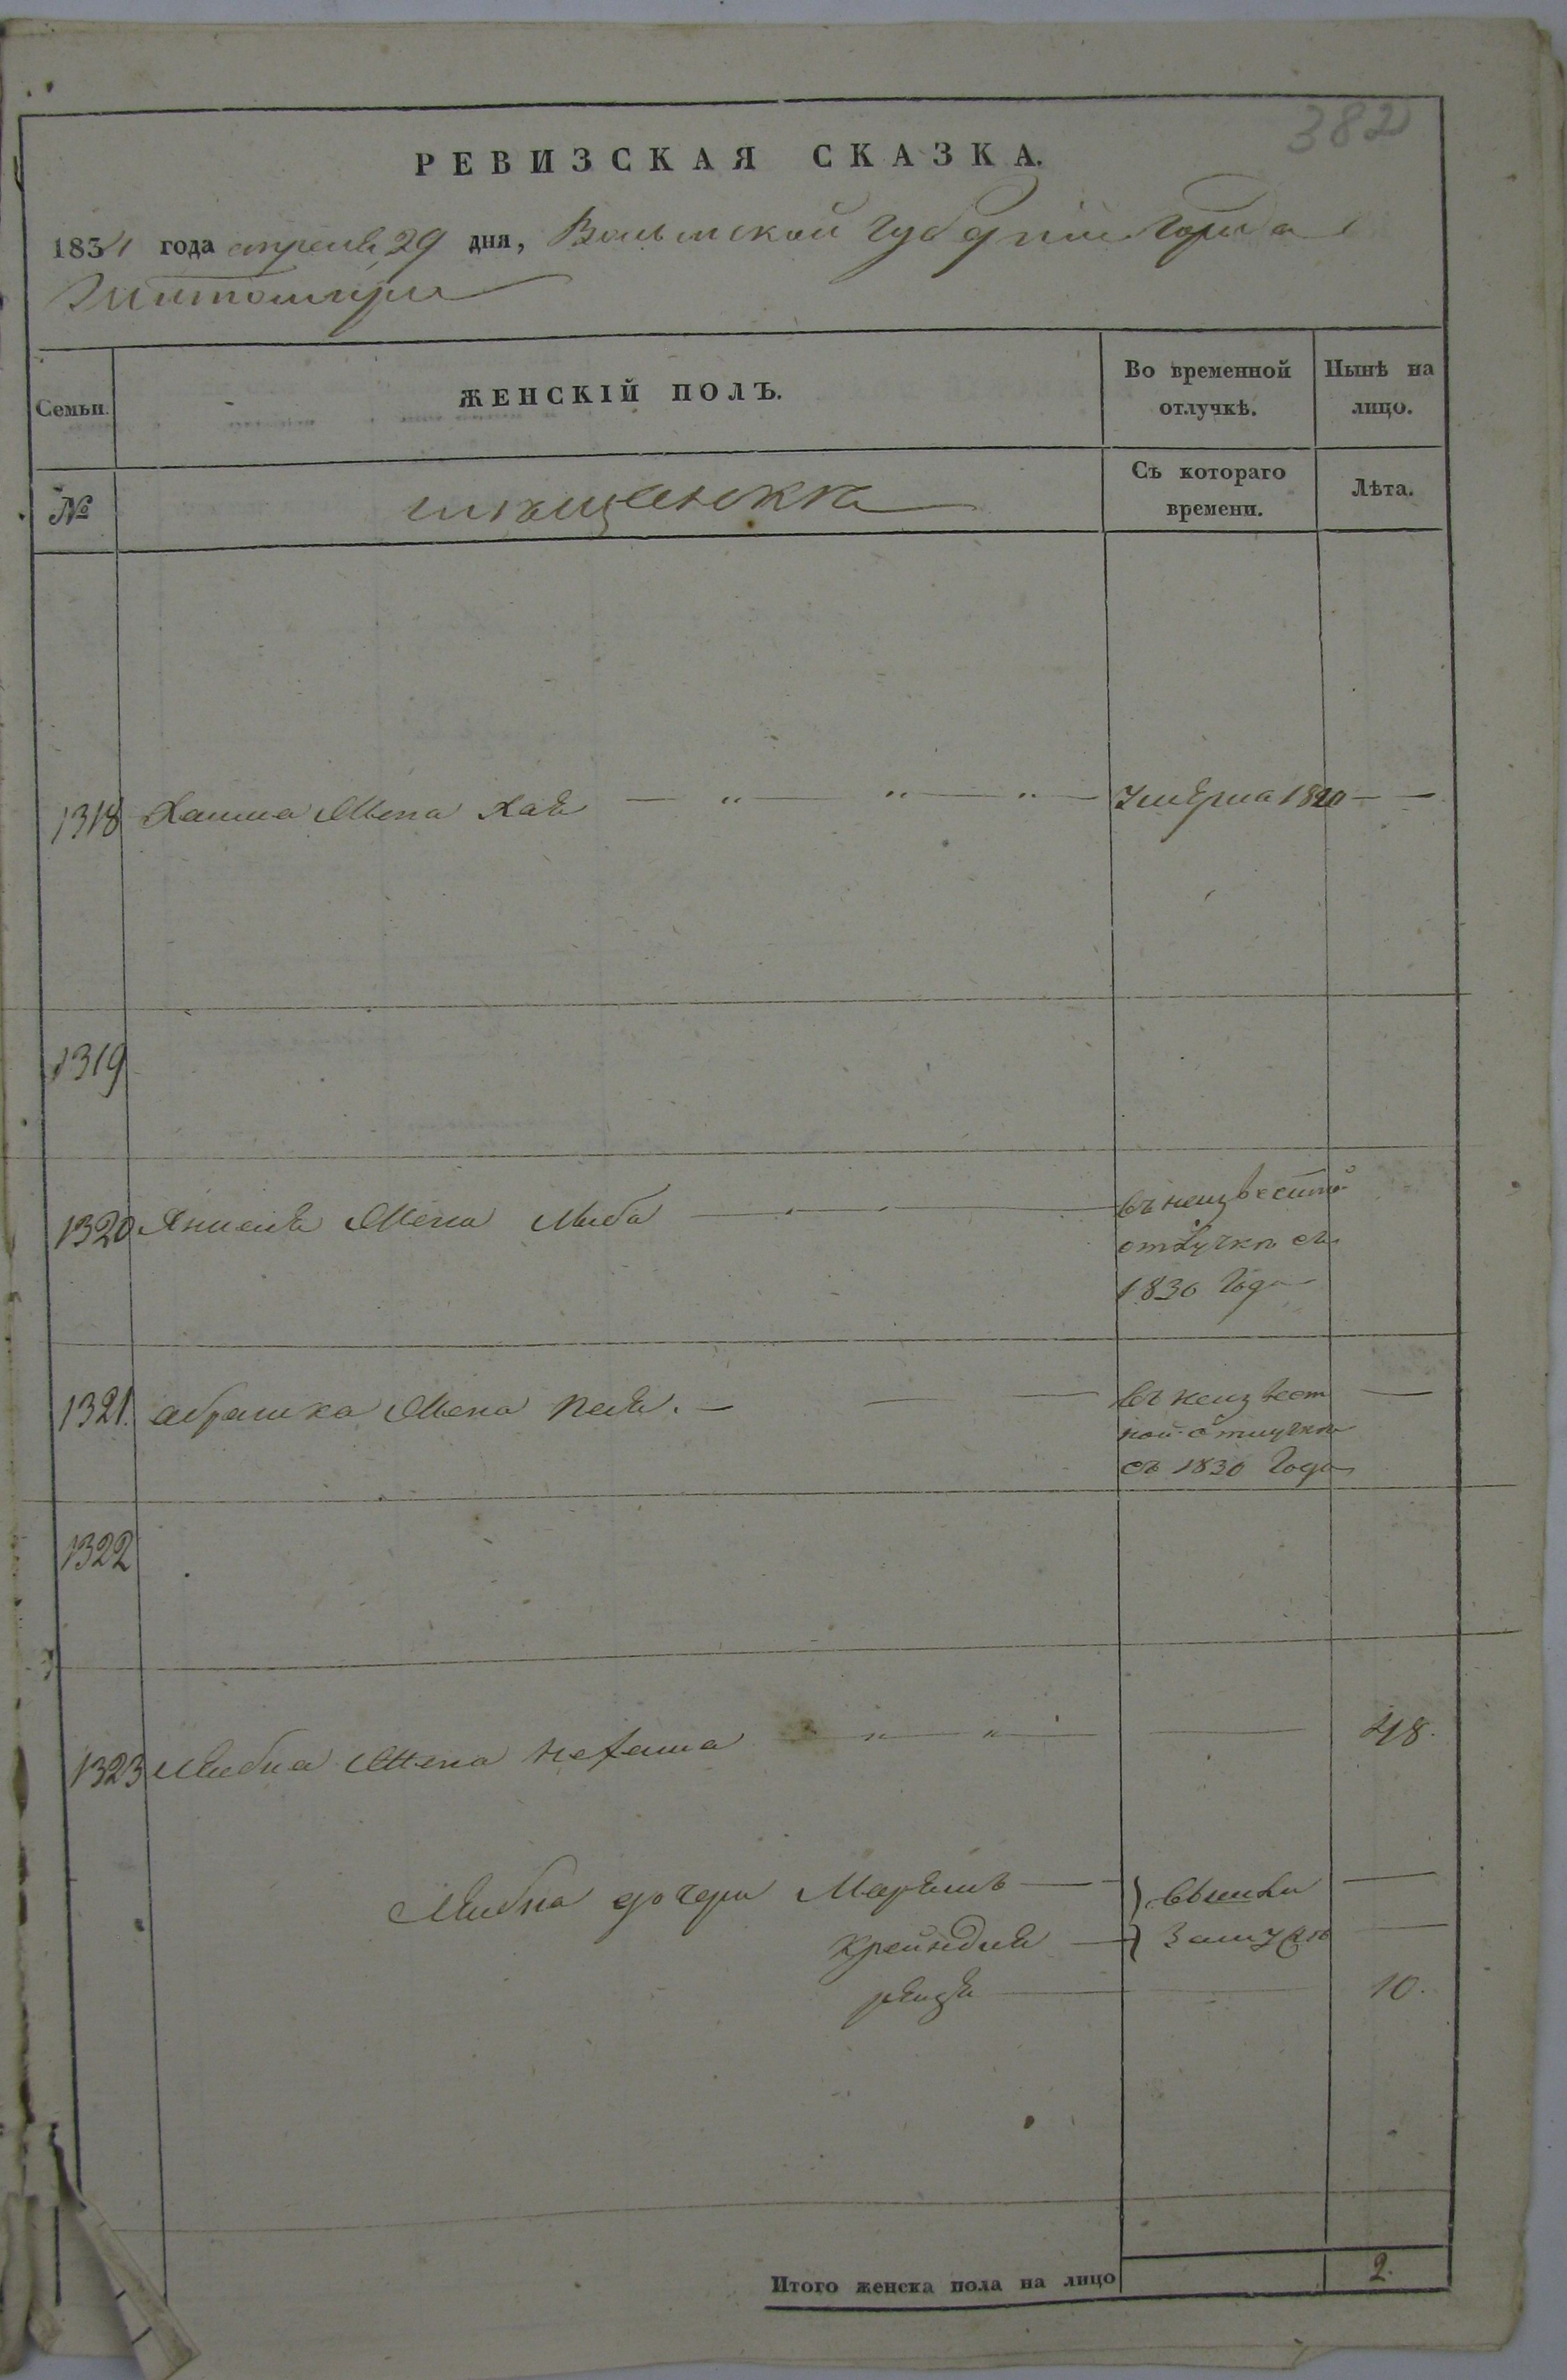 382
РЕВИЗСКАЯ СКАЗКА.
1834 года апреля 29 дня, Волынской губернии города
Житомира
Семьи.
ЖЕНСКІЙ ПОЛЪ.
Во временной отлучкѣ.
Нынѣ на лицо.
№
мещанжка
Съ котораго времени.
Лѣта.
1318 Жена Хая — " — " — " — Умерла 1820 — —
1319
1320 Жена Люба — въ неизвестной
отлучке съ
1830 года
1321. абрашка Жена — — — въ неизвест —
ной отлучке
съ 1830 года
1322
1323 Лейбы Жена Нехама — " — " — — 48.
Лейбы дочери — } вышли —
Крейндля — } замуж —
рейзя — — 10.
Итого женска пола на лицо 2.